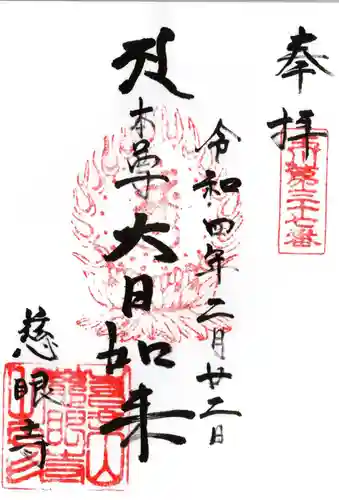 奉拝
第三十七番
令和四年二月廿二日
本尊大日如来
慈眼寺